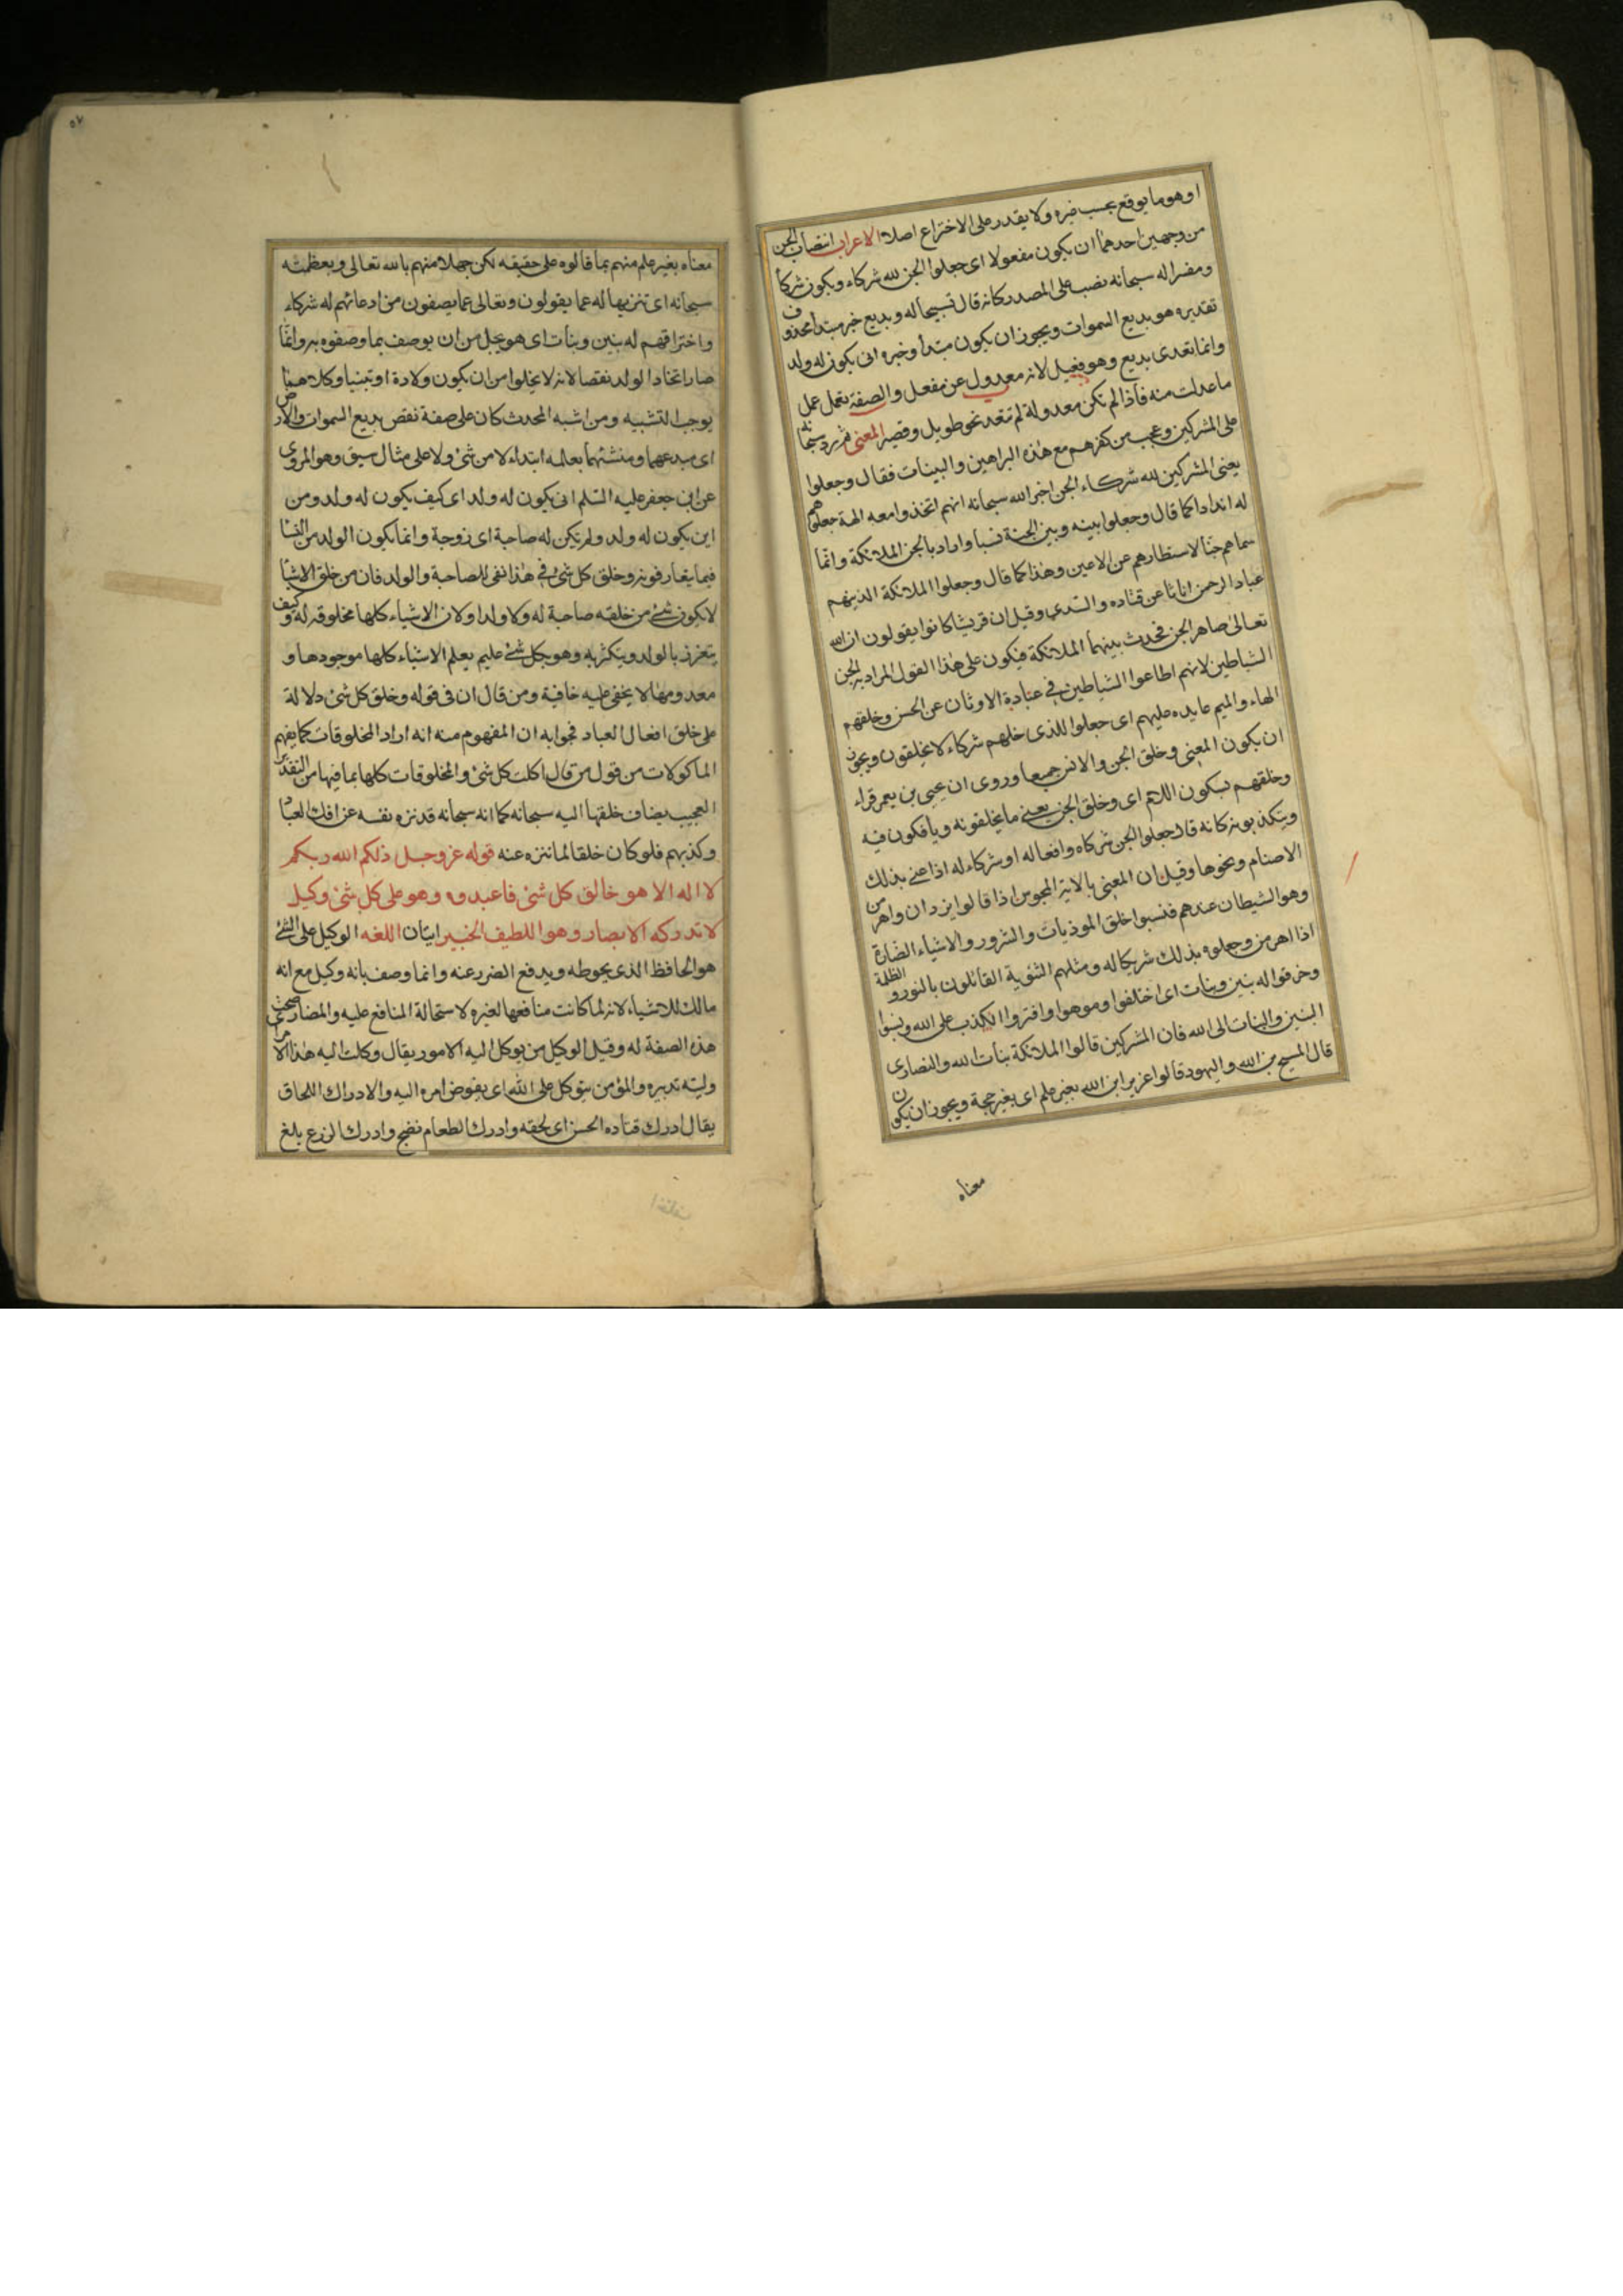 او هو ما يوقع بحسب غيره ولا يقدر على الاختراع اصلا الاعراب انتصاب الجن
من وجهين احدهما ان يكون مفعولا اى جعلوا الجن لله شركاء ويكون شركا
ومفسرا له سبحانه نصب على المصدر كانه قال تسبيحا له وبديع خبر مبتدأ محذوف
تقديره هو بديع السموات ويجوز ان يكون مبتدأ وخبره انى يكون له ولد
وانما تعدى بديع وهو فعيل لانه معدول عن مفعل والصفة تعمل عمل
ما عدلت منه فاذا لم تكن معدولة لم تتعد نحو طويل وقصير المعنى ثم رد سبحانه
على المشركين وعجب من كفرهم مع هذه البراهين والبينات فقال وجعلوا
يعنى المشركين لله شركاء الجن اخبر الله سبحانه انهم اتخذوا معه الهة جعلوهم
له اندادا كما قال وجعلوا بينه وبين الجنة نسبا واراد بالجن الملائكة وانما
سماهم جنا لاستطارهم عن الاعين وهذا كما قال وجعلوا الملائكة الذينهم
عباد الرحمن اناثا عن قتاده والسدى وقيل ان قريشا كانوا يقولون ان الله
تعالى صاهر الجن فحدث بينهما الملائكة فيكون على هذا القول المراد به الجن
الشياطين لانهم اطاعوا الشياطين فى عبادة الاوثان عن الحسن وخلقهم
الهاء والميم عايده عليهم اى جعلوا للذى خلهم شركاء لا يخلقون ويجوز
ان يكون المعنى وخلق الجن والانس جميعا وروى ان عيى بن يعمر قراء
وخلقهم بسكون اللام اى وخلق الجن يعنى ما يخلقونه ويأفكون فيه
ويتكذبونه كانه قال جعلوا الجن شركاه وافعاله او شركاء له اذا عنى بذلك
الاصنام ونحوها وقيل ان المعنى بالاية المجوس اذا قالوا يزدان واهرمن
وهو الشيطان عندهم فنسبوا خلق الموذيات والشرور والاشياء الضارة
اذا اهرمن وجعلوه بذلك شريكا له ومثلهم الثنوية القائلون بالنور والظلمة
وخرقوا له بنين وبنات اى اختلفوا وموهوا وافتروا الكذب على الله ونسبوا
البنين والبنات الى الله فان المشركين قالوا الملائكة بنات الله والنصارى
قال المسيح بن الله واليهود قالوا عزير ابن الله بغير علم اى بغير حجة ويجوز ان يكون
معناه
٥٧
معناه بغير علم منهم بما قالوه على حقيقه لكن جهلا منهم بالله تعالى وبعظمته
سبحانه اى تنزيها له عما يقولون وتعالى عما يصفون من ادعائهم له شركاء
واختراقهم له بنين وبنات اى هو يجل من ان يوصف بما وصفوه به وانما
صار اتخاذ الولد نقصا لانه لا يخلوا من ان يكون ولادة او تبنيا وكلاهما
يوجب التشبيه ومن اشبه المحدث كان على صفة نقص بديع السموات والارض
اى مبدعهما ومنشئهما بعلمه ابتداء لا من شئ ولا على مثال سبق وهو المروى
عن ابى جعفر عليه السلم انى يكون له ولد اى كيف يكون له ولد ومن
اين يكون له ولد ولم يكن له صاحبة اى زوجة وانما يكون الولد من النسا
فيما يتعارفونه وخلق كل شئ فى هذا نفى للصاحبة والولد فان من خلق الاشيا
لا يكون شئ من خلقه صاحبة له ولا ولدا ولان الاشياء كلها مخلوقه له وكيف
يتعزز بالولد ويتكثر به وهو بكل شئ عليم يعلم الاشياء كلها موجودها و
معدومها لا يخفى عليه خافية ومن قال ان فى قوله وخلق كل شئ دلالة
على خلق افعال العباد فجوابه ان المفهوم منه انه اراد المخلوقات كما يفهم
الماكولات من قول من قال اكلت كل شئ والمخلوقات كلها بما فيها من التقدير
العجيب يضاف خلقها اليه سبحانه كما انه سبحانه قد نزه نفسه عن افك العباد
وكذبهم فلو كان خلقا لما تنزه عنه قوله عز وجل ذلكم الله ربكم
لا اله الا هو خالق كل شئ فاعبدوه وهو على كل شئ وكيل
لا تدركه الابصار وهو اللطيف الخبير ايتان اللغه الوكيل على الشئ
هو الحافظ الذى يحوطه ويدفع الضرر عنه وانما وصف بانه وكيل مع انه
مالك للاشياء لانه لما كانت منافعها لغيره لاستحالة المنافع عليه والمضار صحت
هذه الصفة له وقيل الوكيل من يوكل اليه الامور يقال وكلت اليه هذا الامر
وليته تدبيره والمؤمن يتوكل على الله اى يفوض امره اليه والادراك اللحاق
يقال ادرك قتاده الحسن اى لحقه وادرك الطعام نضج وادرك الزرع بلغ